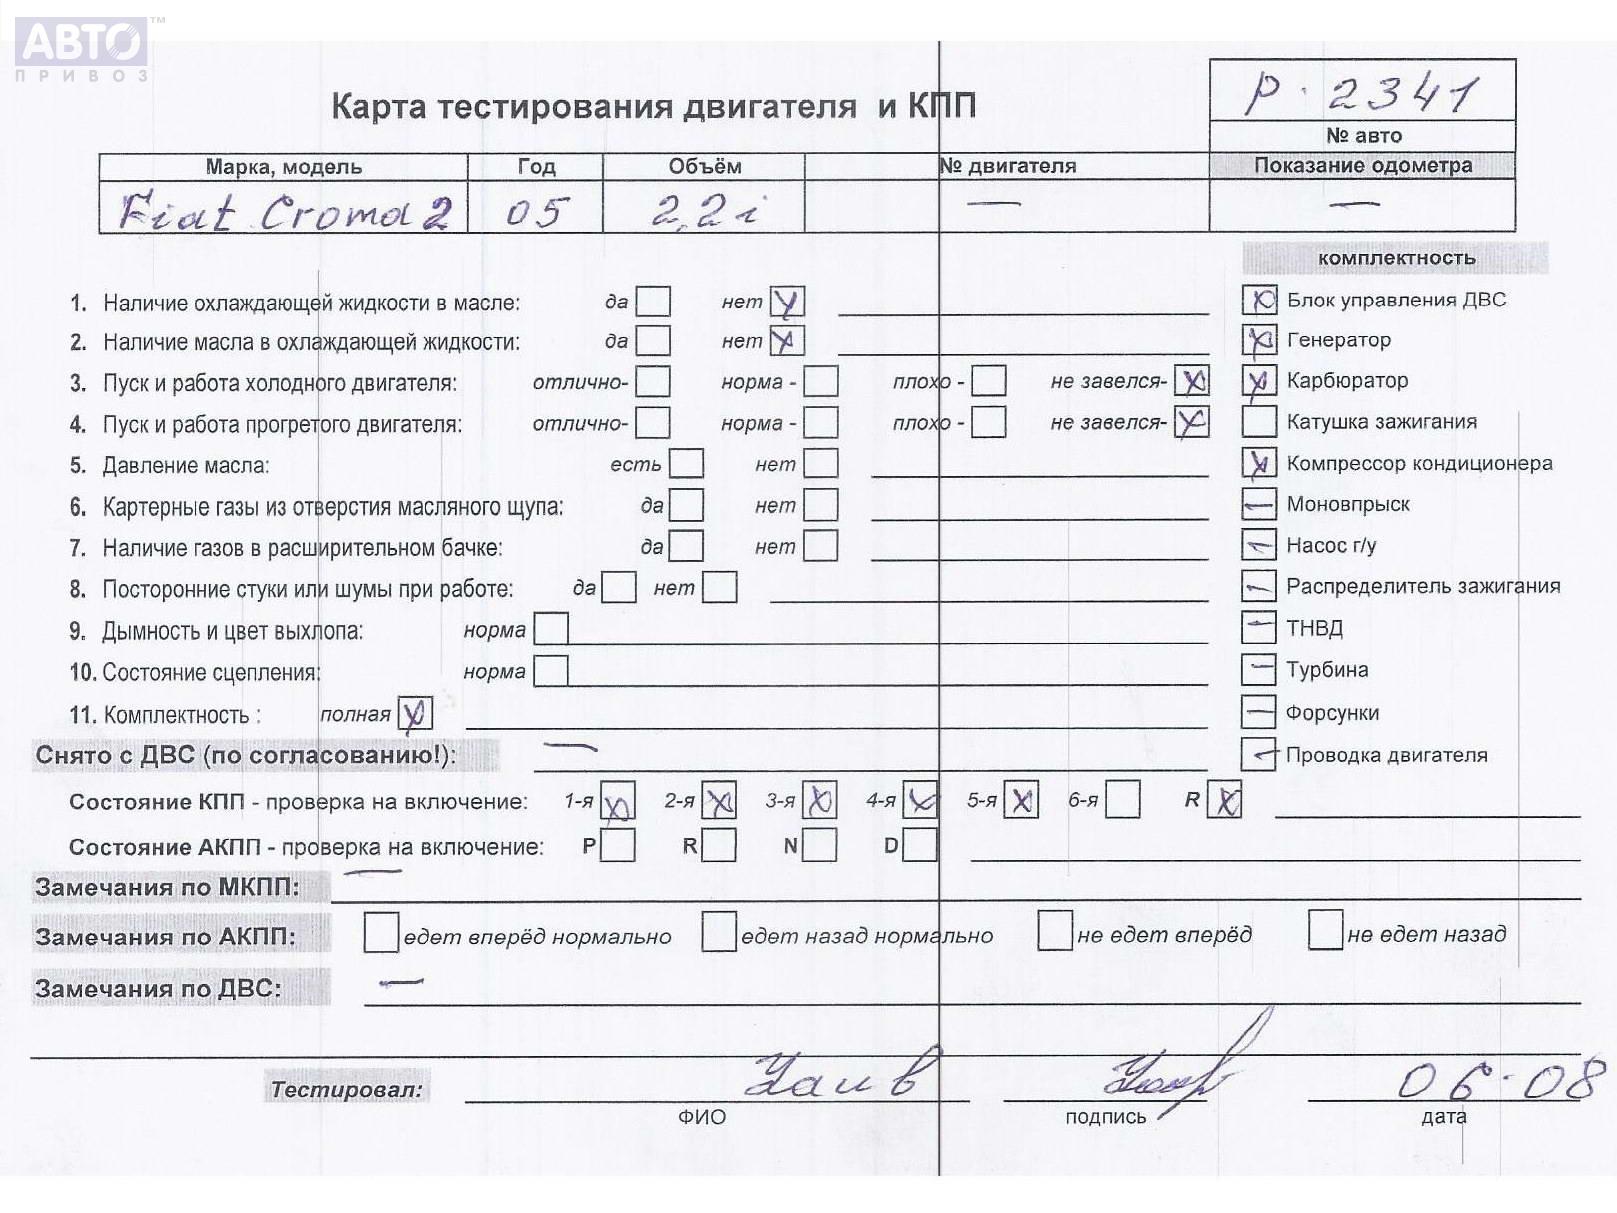 АВТО™
ПРИВОЗ
Карта тестирования двигателя и КПП
Р · 2341
№ авто
Марка, модель Год Объём № двигателя Показание одометра
Fiat Croma 2 05 2,2i — —
комплектность
1. Наличие охлаждающей жидкости в масле: да нет Блок управления ДВС
2. Наличие масла в охлаждающей жидкости: да нет Генератор
3. Пуск и работа холодного двигателя: отлично- норма - плохо - не завелся- Карбюратор
4. Пуск и работа прогретого двигателя: отлично- норма - плохо - не завелся- Катушка зажигания
5. Давление масла: есть нет Компрессор кондиционера
6. Картерные газы из отверстия масляного щупа: да нет Моновпрыск
7. Наличие газов в расширительном бачке: да нет Насос г/у
8. Посторонние стуки или шумы при работе: да нет Распределитель зажигания
9. Дымность и цвет выхлопа: норма ТНВД
10. Состояние сцепления: норма Турбина
11. Комплектность : полная Форсунки
Снято с ДВС (по согласованию!): — Проводка двигателя
Состояние КПП - проверка на включение: 1-я 2-я 3-я 4-я 5-я 6-я R
Состояние АКПП - проверка на включение: P R N D
Замечания по МКПП: —
Замечания по АКПП: едет вперёд нормально едет назад нормально не едет вперёд не едет назад
Замечания по ДВС: —
Тестировал: 06·08
ФИО подпись дата